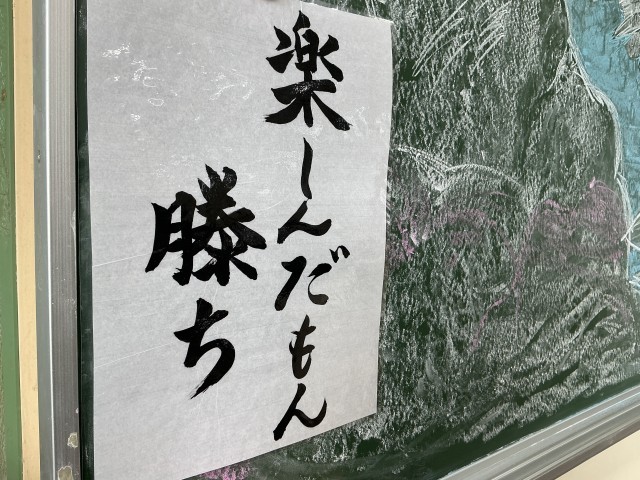 楽しんだもん
滕ち